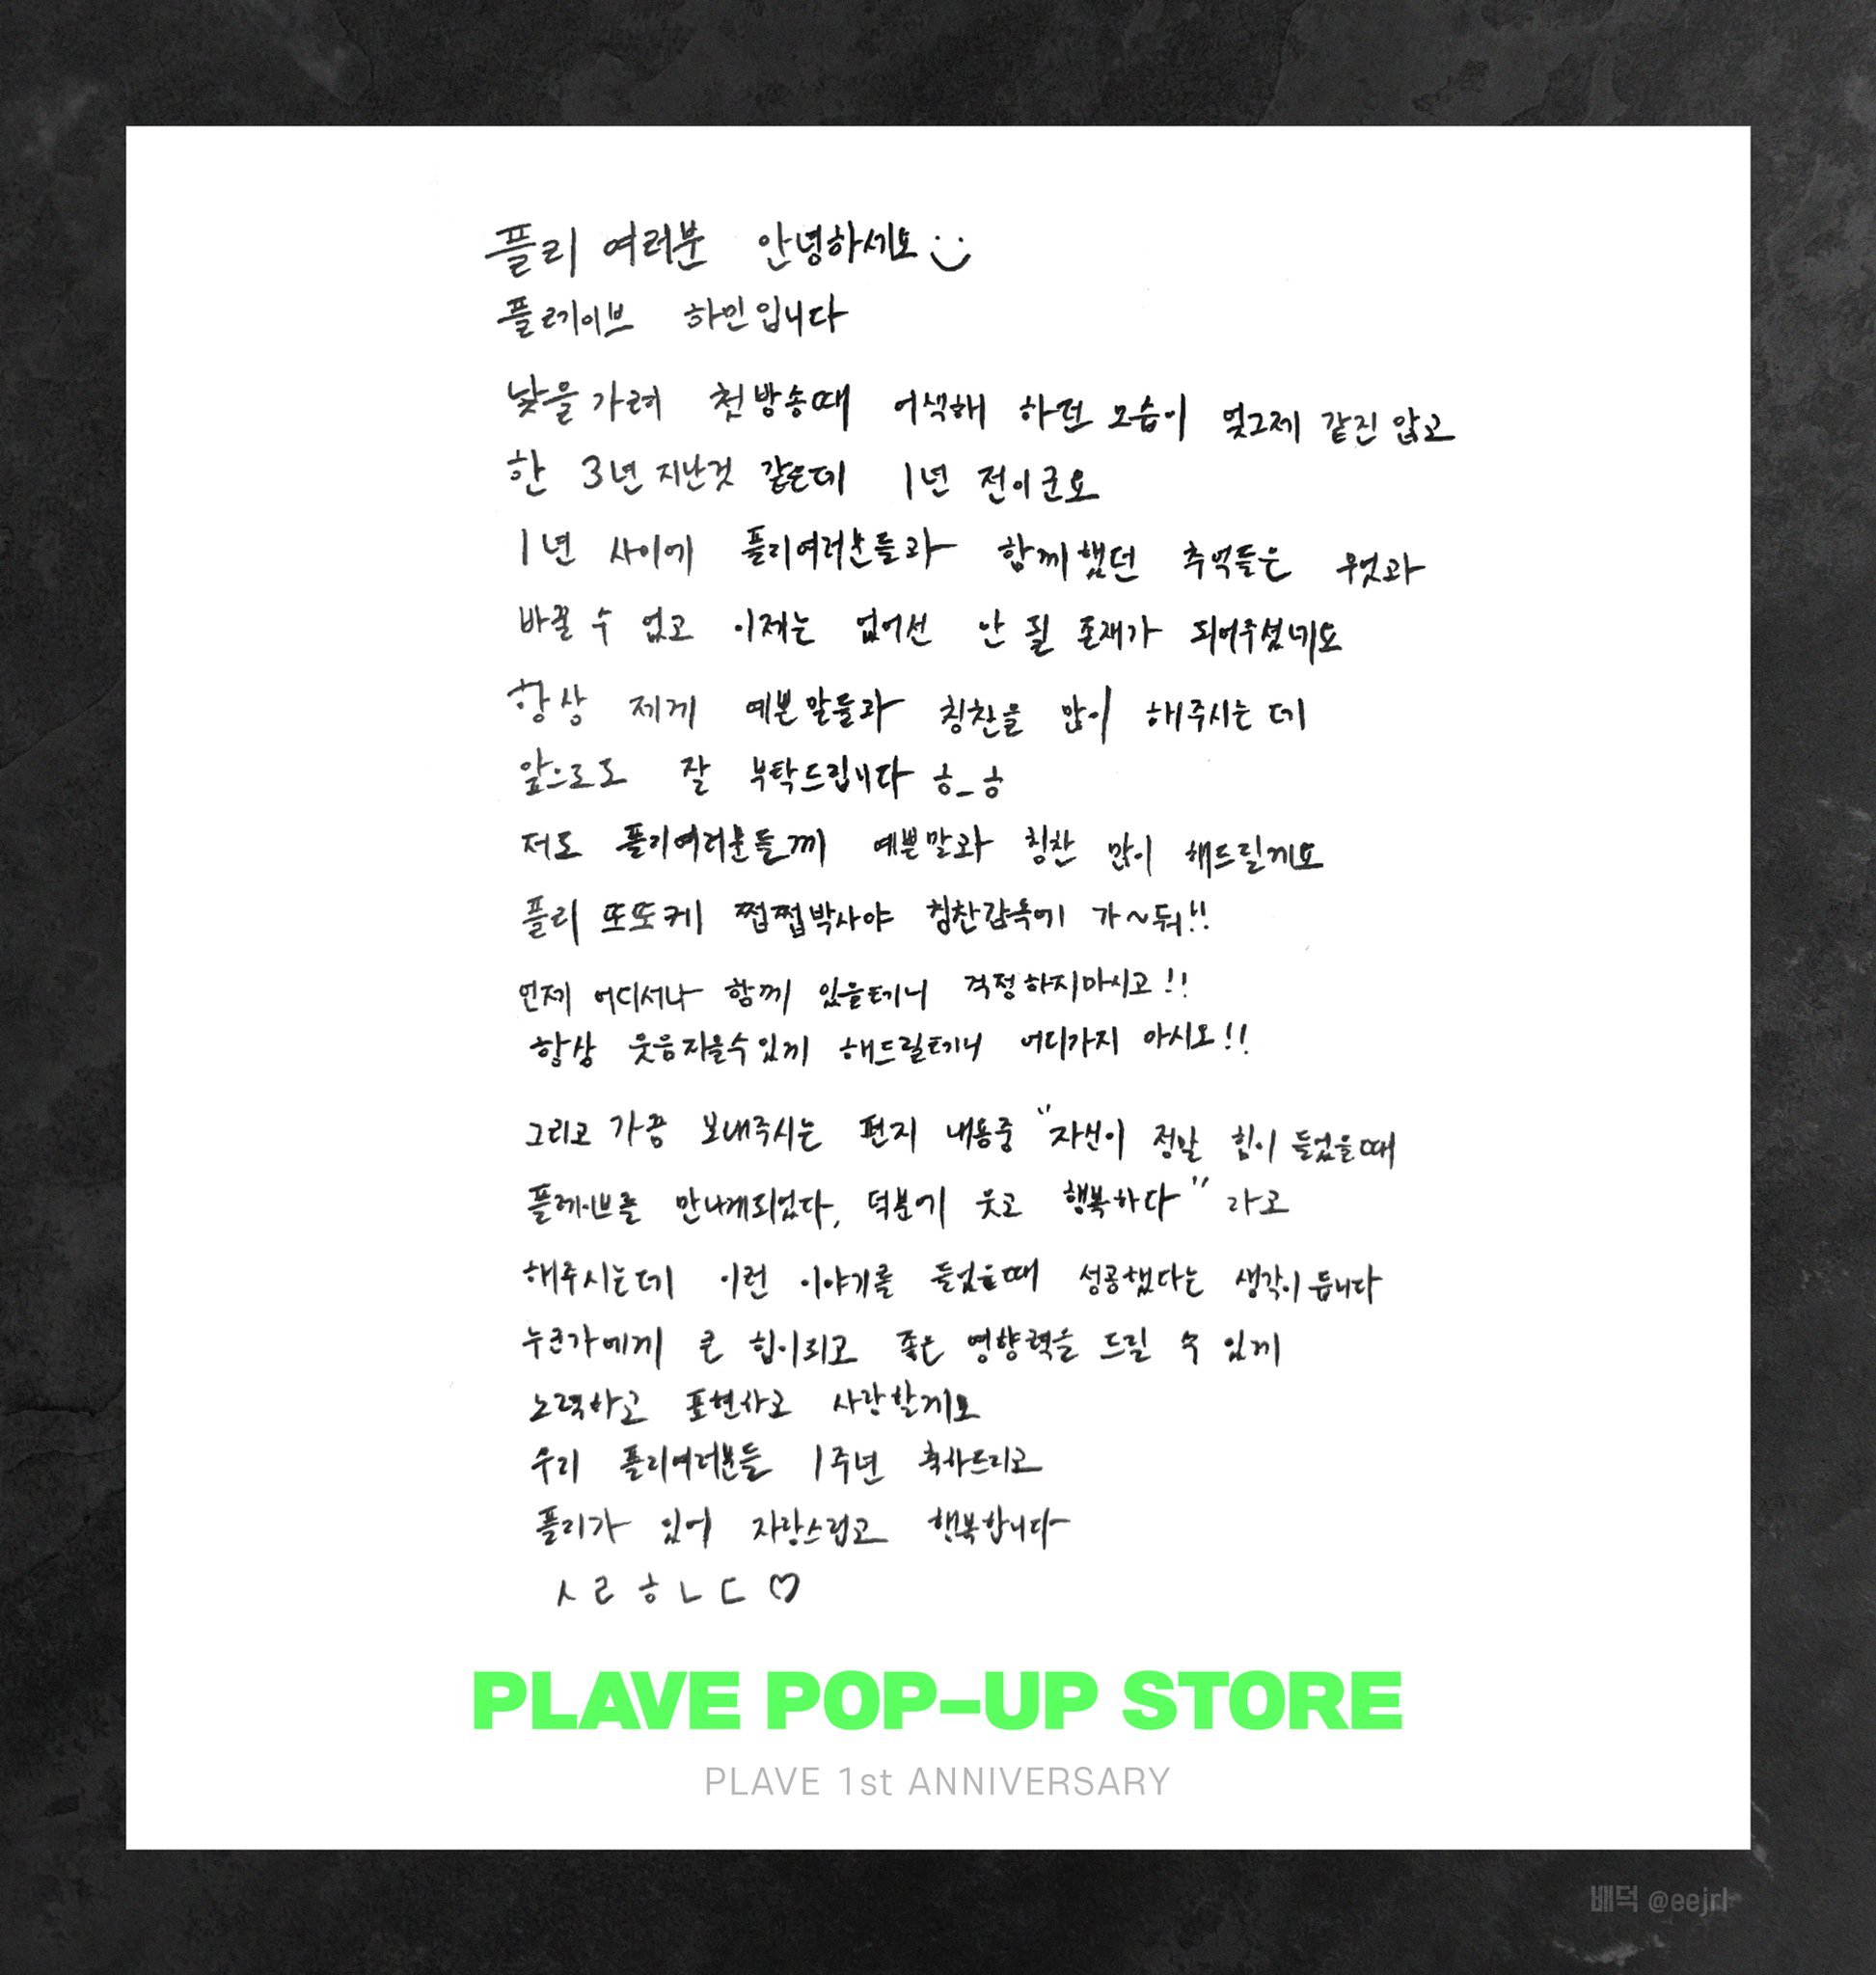 플리 여러분 안녕하세요
플레이브 하민입니다
낯을 가려 첫방송때 어색해 하던 모습이 엊그제 같진 않고
한 3년 지난것 같은데 1년 전이군요
1년 사이에 플리여러분들과 함께했던 추억들은 무엇과
바꿀 수 없고 이제는 없어선 안 될 존재가 되어주셨네요
항상 제게 예쁜말들과 칭찬을 많이 해주시는데
앞으로도 잘 부탁드립니다 ㅎ_ㅎ
저도 플리여러분들께 예쁜말과 칭찬 많이 해드릴게요
플리 또또케 쩝쩝박사야 칭찬감옥에 가~둬!!
언제 어디서나 함께 있을테니 걱정하지마시고!!
항상 웃음지을수있게 해드릴테니 어디가지 마시오!!
그리고 가끔 보내주시는 편지 내용중 "자신이 정말 힘이 들었을때
플레이브를 만나게되었다, 덕분에 웃고 행복하다" 라고
해주시는데 이런 이야기를 들었을때 성공했다는 생각이 듭니다
누군가에게 큰 힘이되고 좋은 영향력을 드릴 수 있게
노력하고 표현하고 사랑할게요
우리 플리여러분들 1주년 축하드리고
플리가 있어 자랑스럽고 행복합니다
ㅅㄹㅎㄴㄷ♡
PLAVE POP-UP STORE
PLAVE 1st ANNIVERSARY
배덕 @eejrl